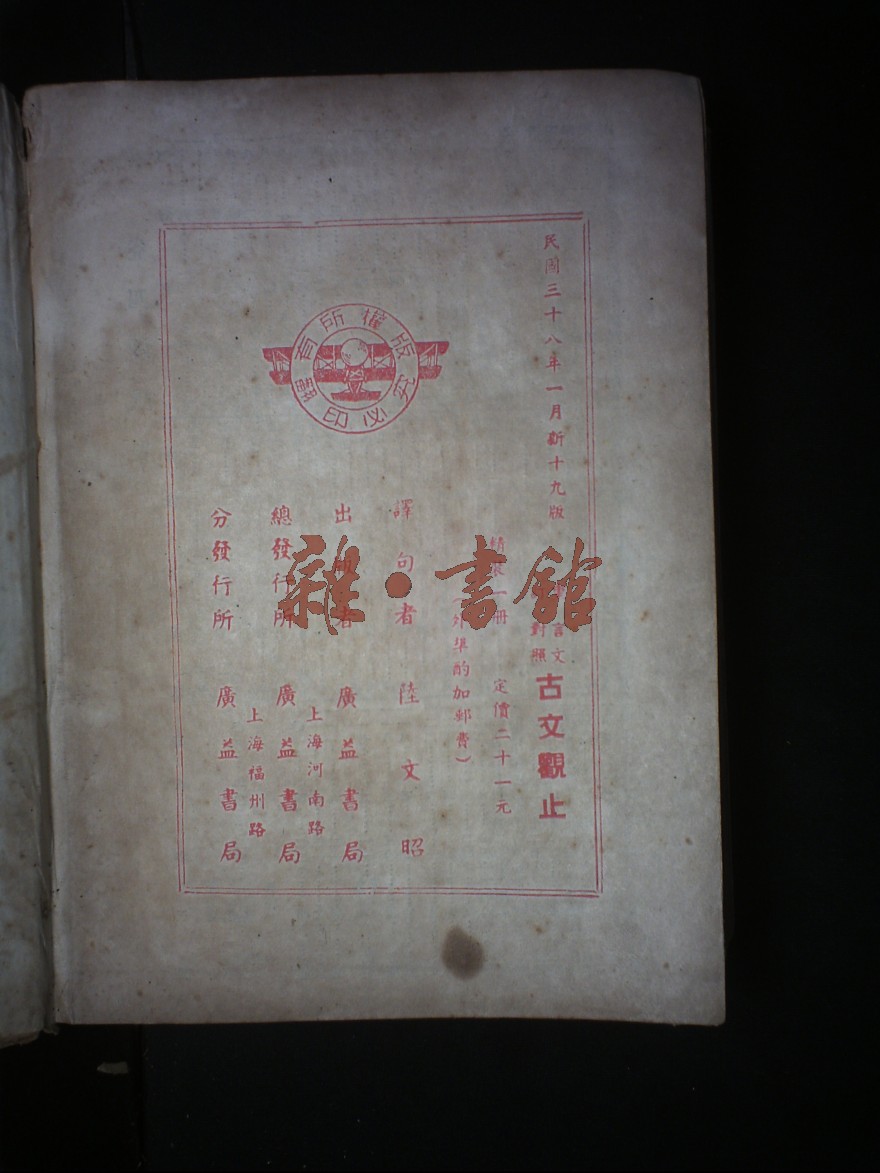 民國三十八年一月新十九版
言文
對照
古文觀止
精裝一冊 定價二十一元
外埠酌加郵費）
譯句者 陸文昭
出版者 廣益書局
上海河南路
總發行所 廣益書局
上海福州路
分發行所 廣益書局
版權所有
翻印必究
雜·書館